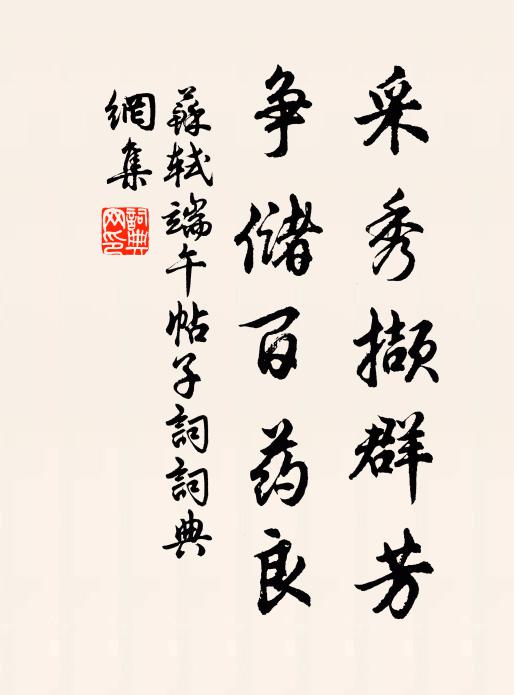 采秀撷群芳
争储百药良
蘇軾端午帖子詞詞典
網集
詞典
网印